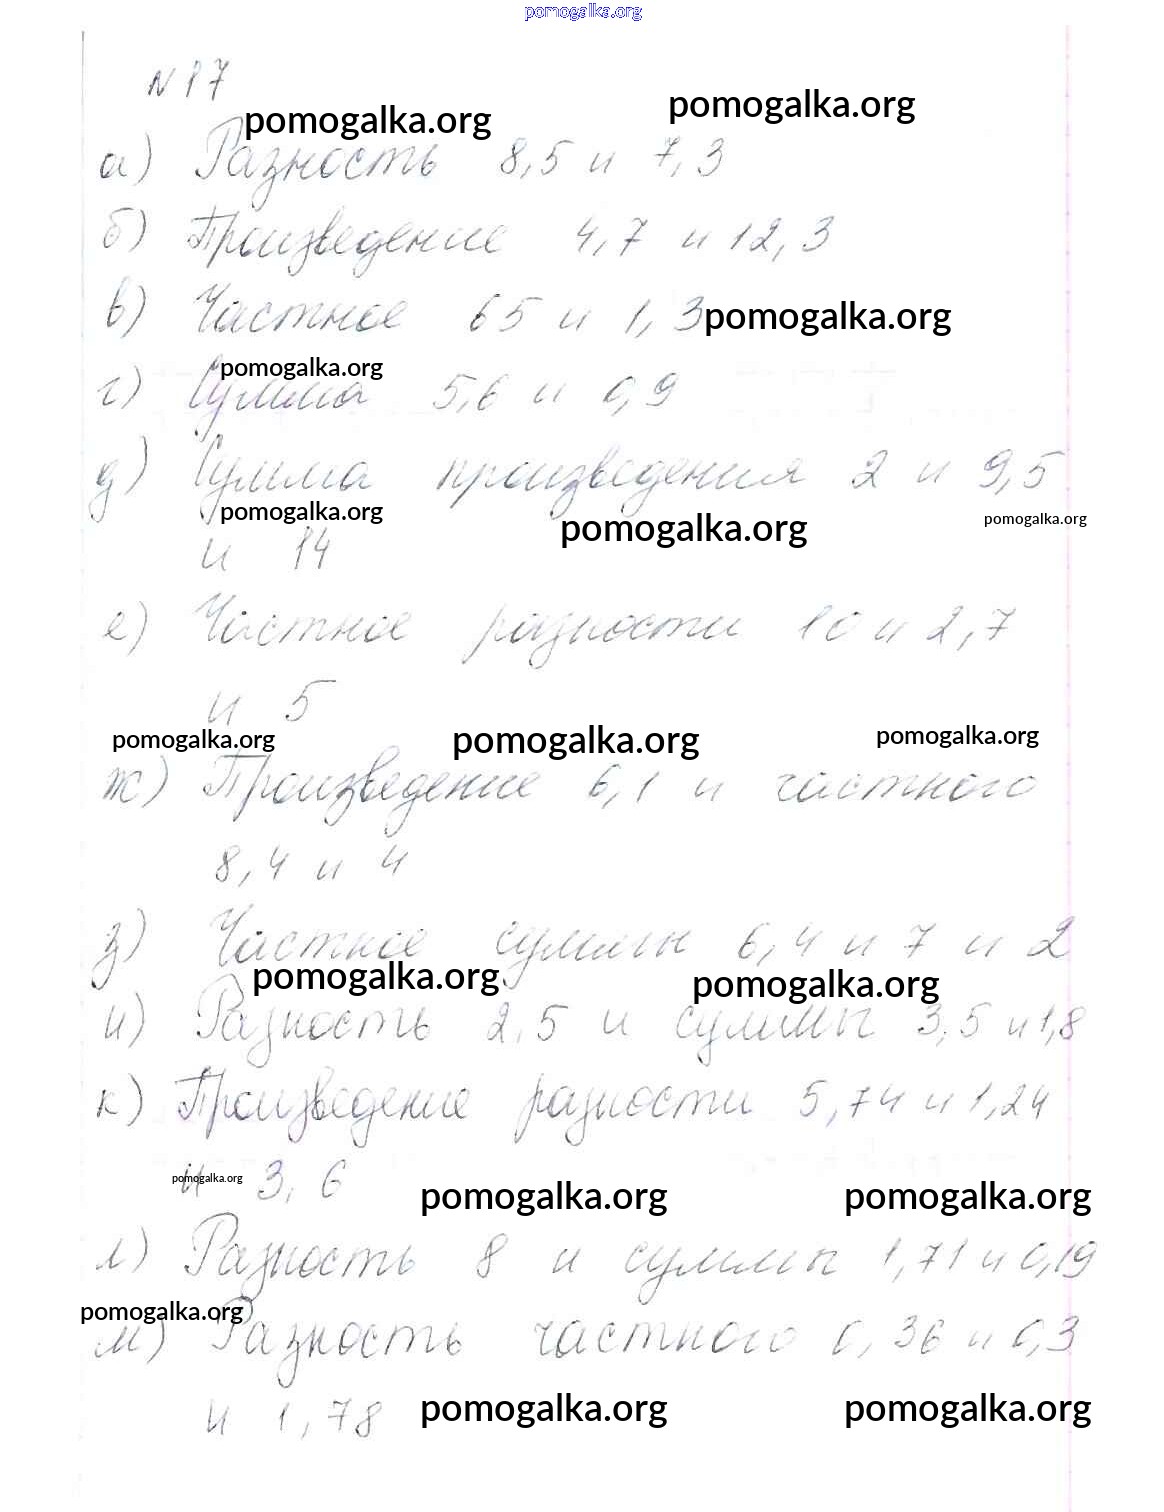 pomogalka.org
N 17
pomogalka.org pomogalka.org
а) Разность 8,5 и 7,3
б) Произведение 4,7 и 12,3
в) Частное 65 и 1,3 pomogalka.org
pomogalka.org
г) Сумма 5,6 и 0,9
д) Сумма произведения 2 и 9,5
pomogalka.org pomogalka.org pomogalka.org
и 14
е) Частное разности 10 и 2,7
и 5
pomogalka.org pomogalka.org pomogalka.org
ж) Произведение 6,1 и частного
8,4 и 4
з) Частное суммы 6,4 и 7 и 2
pomogalka.org pomogalka.org
и) Разность 2,5 и суммы 3,5 и 1,8
к) Произведение разности 5,74 и 1,24
и 3,6
pomogalka.org pomogalka.org pomogalka.org
л) Разность 8 и суммы 1,71 и 0,19
pomogalka.org
м) Разность частного 0,36 и 0,3
и 1,78 pomogalka.org pomogalka.org